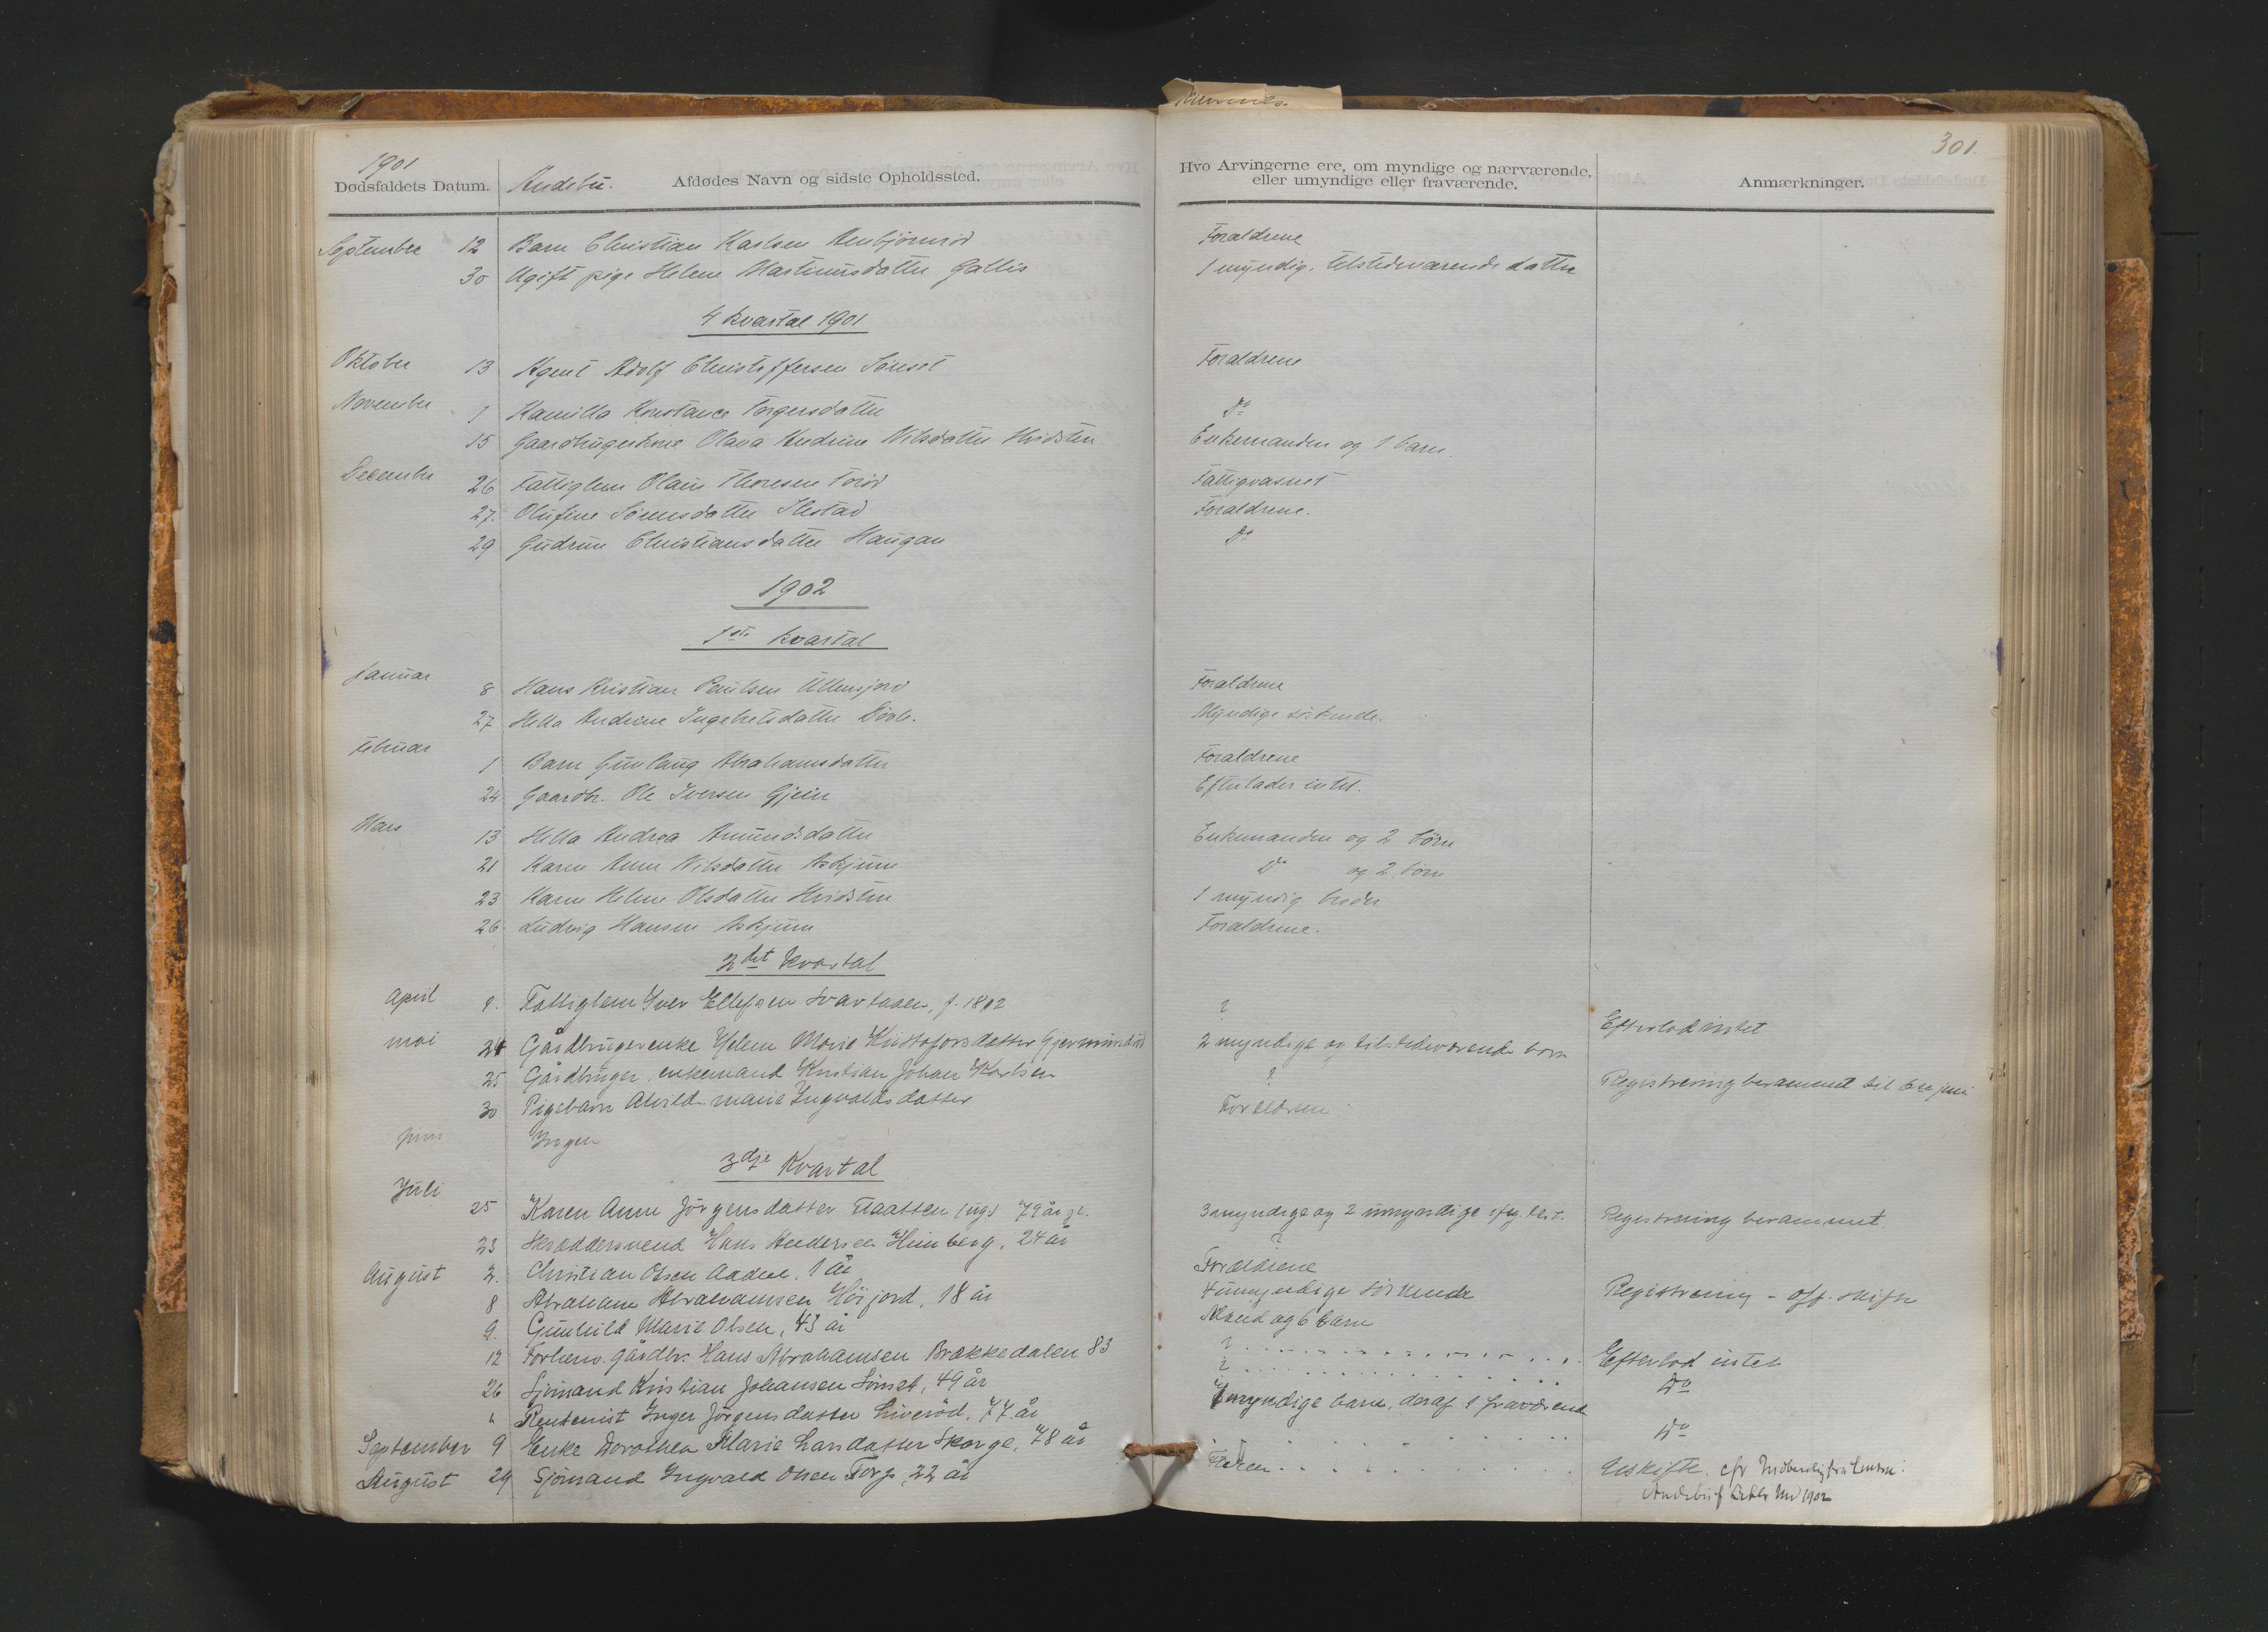 301.
1901
Dødsfaldets Datum. Andebu. Afdødes Navn og sidste Opholdssted. Hvo Arvingerne ere, om myndige og nærværende, eller umyndige eller fraværende. Anmærkninger.
September 12 Barn Christian Karlsen Anbjørnrød Forældrene
30 Ugift pige Helene Martinusdatter Gallis 1 myndig, tilstedeværende datter
4 Kvartal 1901
Oktober 13 Agent Adolf Christoffersen Sønset Forældrene
November 1 Kamilla Konstance Torgersdatter Do
15 Gaardbrugerkone Olava Andrine Nilsdatter Hvidsten Enkemanden og 1 barn
December 26 Fattiglem Olaus Thoresen Torød Fattigvæsnet
27. Olufine Sørensdatter Ilestad Forældrene.
29 Gudrun Christiansdatter Haugan Do
1902
1ste Kvartal
Januar 8 Hans Kristian Paulsen Ullensjord Forældrene
27 Hella Andrine Ingebretsdatter Døvle. Myndige søskende.
Februar 1 Barn Gunlaug Abrahamsdatter Forældrene
24 Gaardbr. Ole Iversen Gjein Efterlader intet.
Mars 13 Hella Andrea Amundsdatter Enkemanden og 2 børn
21 Karen Anne Nilsdatter Askjum Do og 2 børn
23 Karen Helene Olsdatter Hvidsten 1 myndig broder
26 Ludvig Hansen Askjum Forældrene.
2det Kvartal
April 9. Fattiglem Iver Ellefsen Svartaaen, f. 1812 ? Efterlod intet
mai 24 Gårdbrugerenke Helene Marie Kristofersdatter Gjermundrød 2 myndige og tilstedeværende børn
25 Gårdbruger, enkemand Kristian Johan Karlsen ? Registrering berammet til 6te juni
30 Pigebarn Alvilde Marie Ingvaldsdatter Forældrene
juni Ingen
3dje Kvartal
Juli 25 Karen Anne Jørgensdatter Taatten (ug) 79 år gl. 3 myndige og 2 umyndige Registrering berammet.
23 Skræddersvend Hans Andersen Heimberg, 24 år ?
August 2. Christian Olsen Aadne, 1 år Forældrene
8 Abraham Abrahamsen Høijord, 18 år 4 umyndige søskende Registrering – off. skifte
9. Gunhild Marie Olsen, 43 år Mand og 6 barn
12 Forhenv. gårdbr. Hans Abrahamsen Brækkedalen 83 ? Efterlod intet
26 Sjømand Kristian Johansen Sønset, 49 år ? Do
" Rentenist Inger Jørgensdatter Liverød, 77 år myndige barn, deraf 1 fraværend
September 9 Enke Dorothea Marie Larsdatter Skorge, 78 år Do
August 29 Sjømand Ingvald Olsen Torp, 22 år Faderen Uskifte. cfr Indberetning fra Lensm. i
Andebu 1902